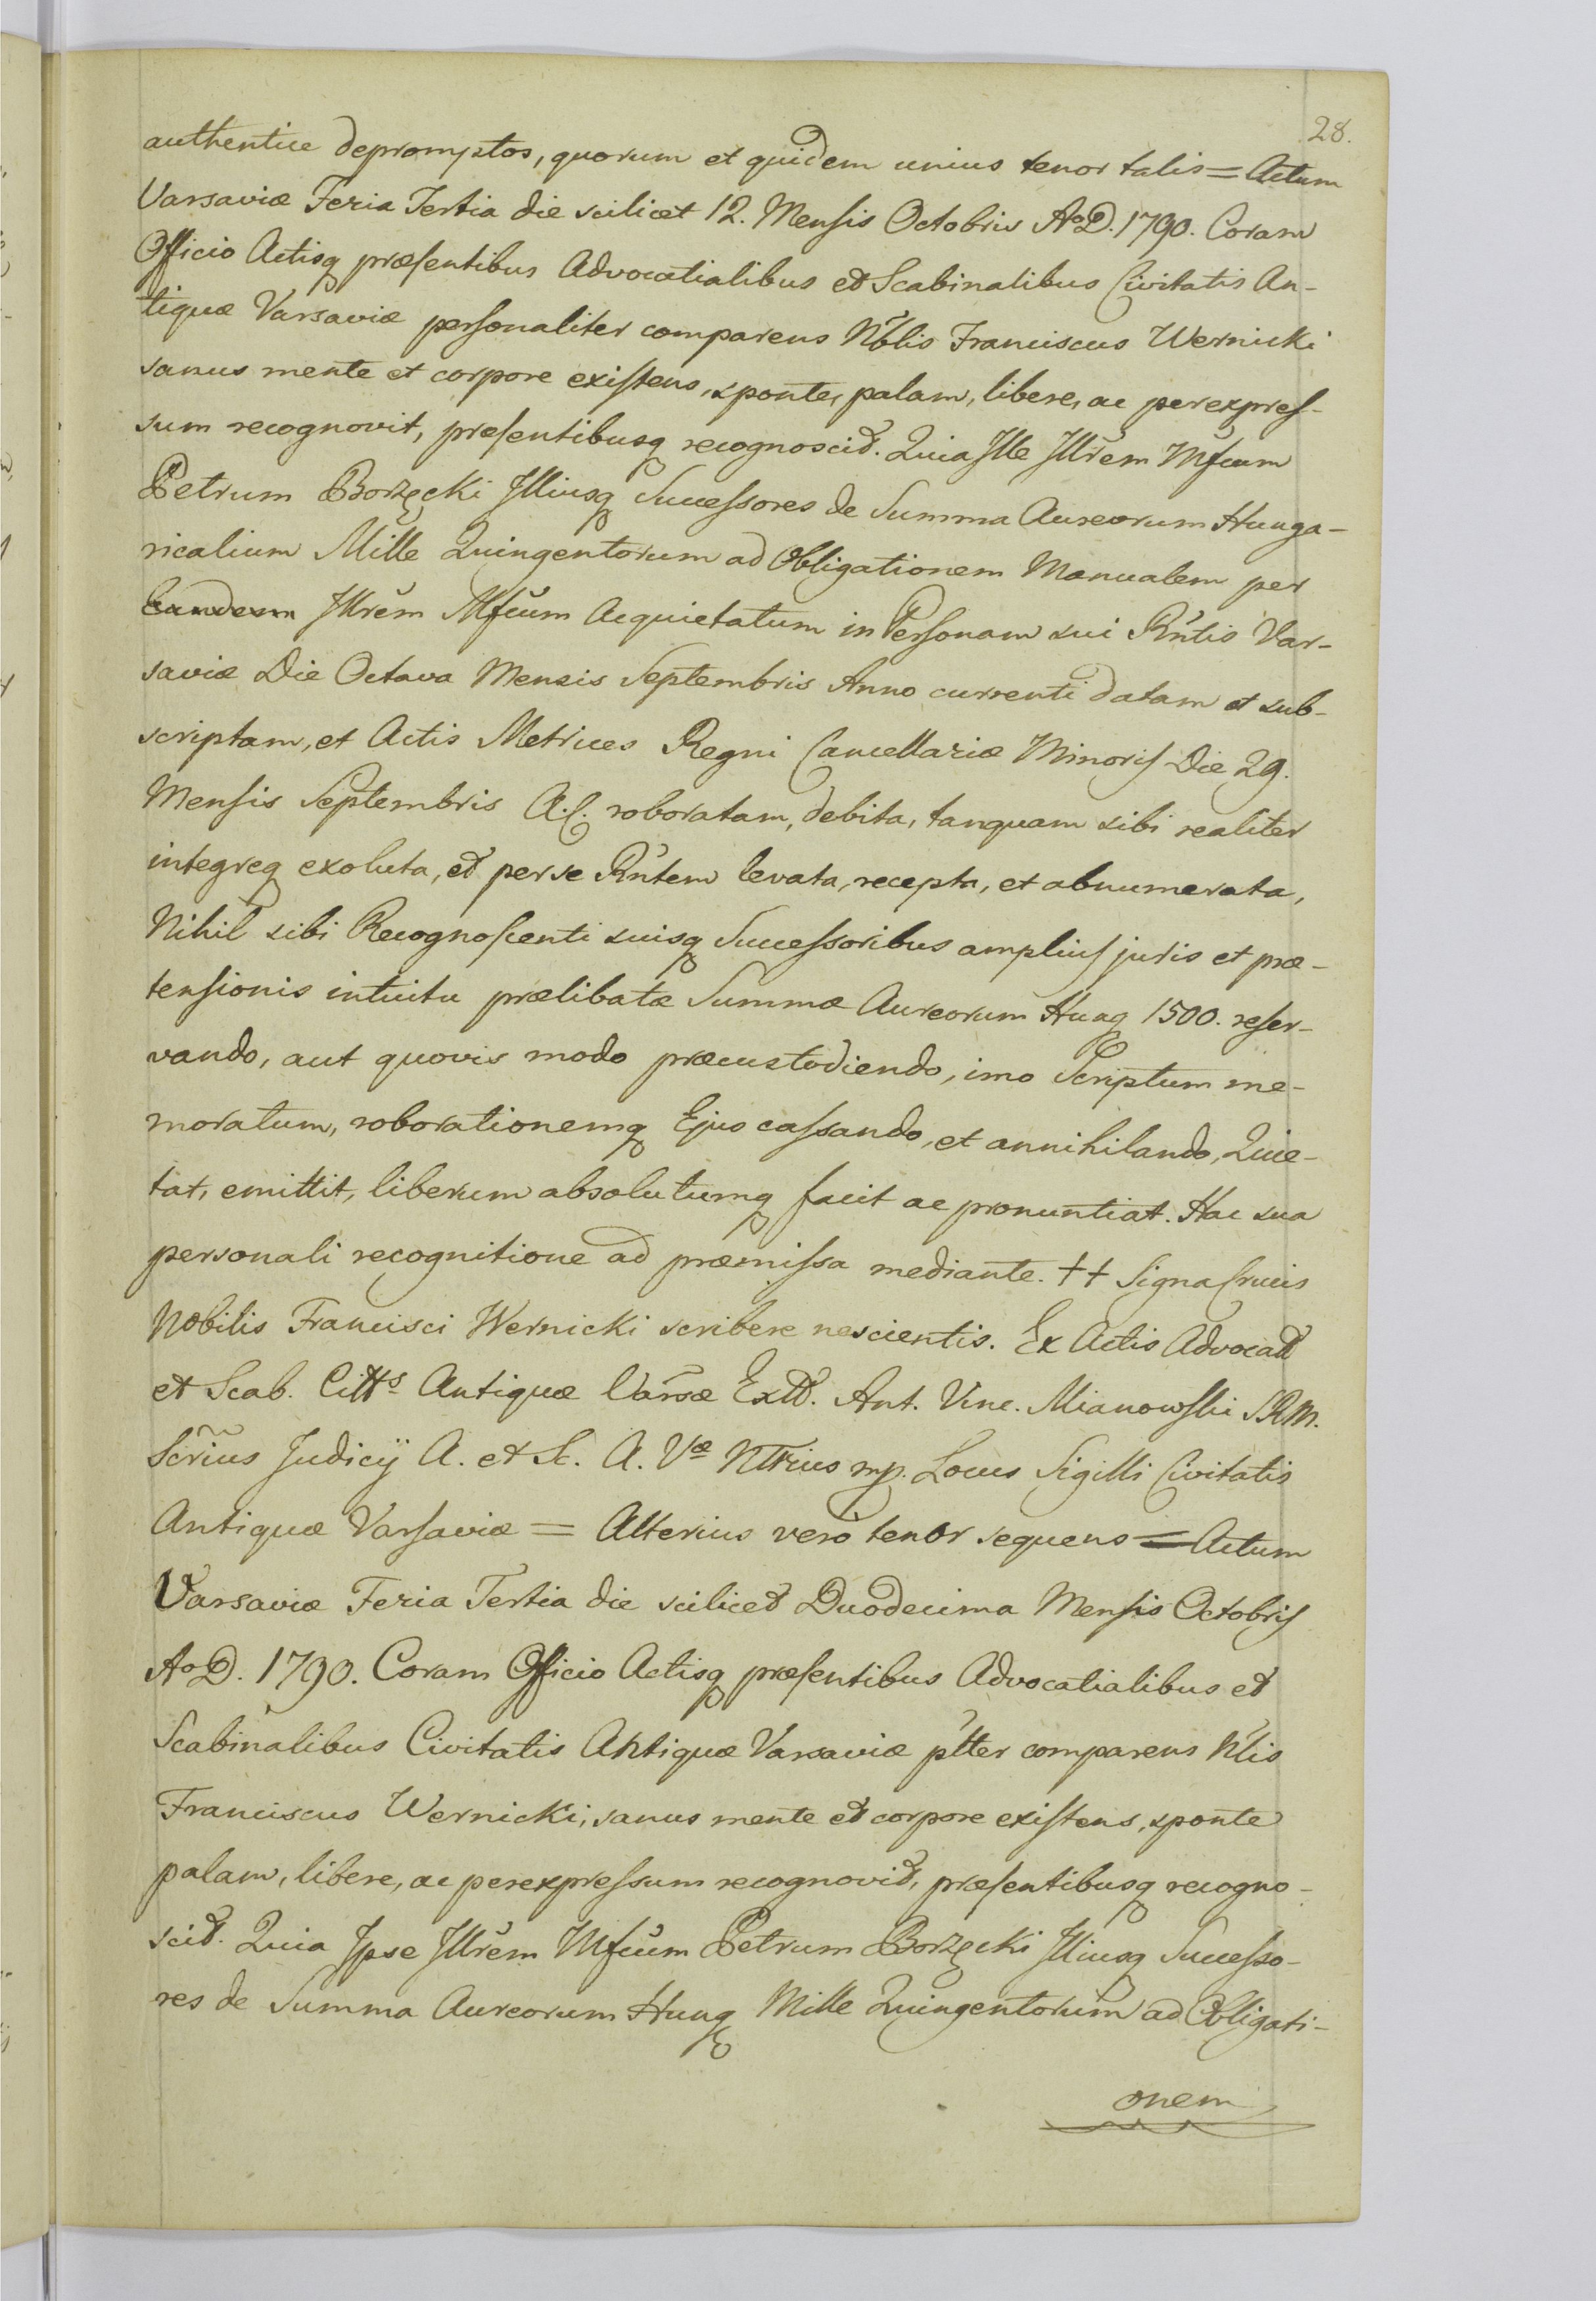 28.
authentice depromptos, quorum et quidem unius tenor talis = Actum
Varsaviæ Feria Tertia die scilicet 12. Mensis Octobris Aō D. 1790. Coram
Officio Actisq præsentibus Advocatialibus et Scabinalibus Civitatis An-
tiquæ Varsaviæ personaliter comparens Nblis Franciscus Wernicki
sanus mente et corpore existens, sponte, palam, libere, ac perexpres-
sum recognovit, præsentibusq recognoscit. Quia Ille Illrem Mfcum
Petrum Borzęcki Illiusq Successores de Summa Aureorum Hunga-
ricalium Mille Quingentorum ad Obligationem Manualem per
Eundem Illrem Mfcum Acquietatum in Personam sui Rntis Var-
saviæ Die Octava Mensis Septembris Anno currenti datam et sub-
scriptam, et Actis Metrices Regni Cancellariæ Minoris Die 29.
Mensis Septembris A.C. roboratam, debita, tanquam sibi realiter
integreq exoluta, et per se Rntem levata, recepta, et abnumerata,
Nihil sibi Recognoscenti suisq Successoribus amplius juris et præ-
tensionis intuitu prælibatæ Summæ Aureorum Hung 1500. reser-
vando, aut quovis modo præcustodiendo, imo Scriptum me-
moratum, roborationemq Ejus cassando, et annihilando, Quie-
tat, emittit, liberum absolutumq facit ac pronuntiat. Hac sua
personali recognitione ad præmissa mediante. ++ Signa Crucis
Nobilis Francisci Wernicki scribere nescientis. Ex Actis Advocatt
et Scab. Cittˢ Antiquæ Varsæ Extt. Ant. Vinc. Mianowski SRM.
Scrius Judicÿ A. et Sc. A. Væ Nttrius mp. Locus Sigilli Civitatis
Antiquæ Varsaviæ = Alterius verò tenor sequens = Actum
Varsaviæ Feria Tertia die scilicet Duodecima Mensis Octobris
Aō D. 1790. Coram Officio Actisq præsentibus Advocatialibus et
Scabinalibus Civitatis Antiquæ Varsaviæ pltter comparens Nlis
Franciscus Wernicki, sanus mente et corpore existens, sponte
palam, libere, ac perexpressum recognovit, præsentibusq recogno-
scit. Quia Ipse Illrem Mfcum Petrum Borzęcki Illiusq Successo-
res de Summa Aureorum Hung Mille Quingentorum ad Obligati-
onem